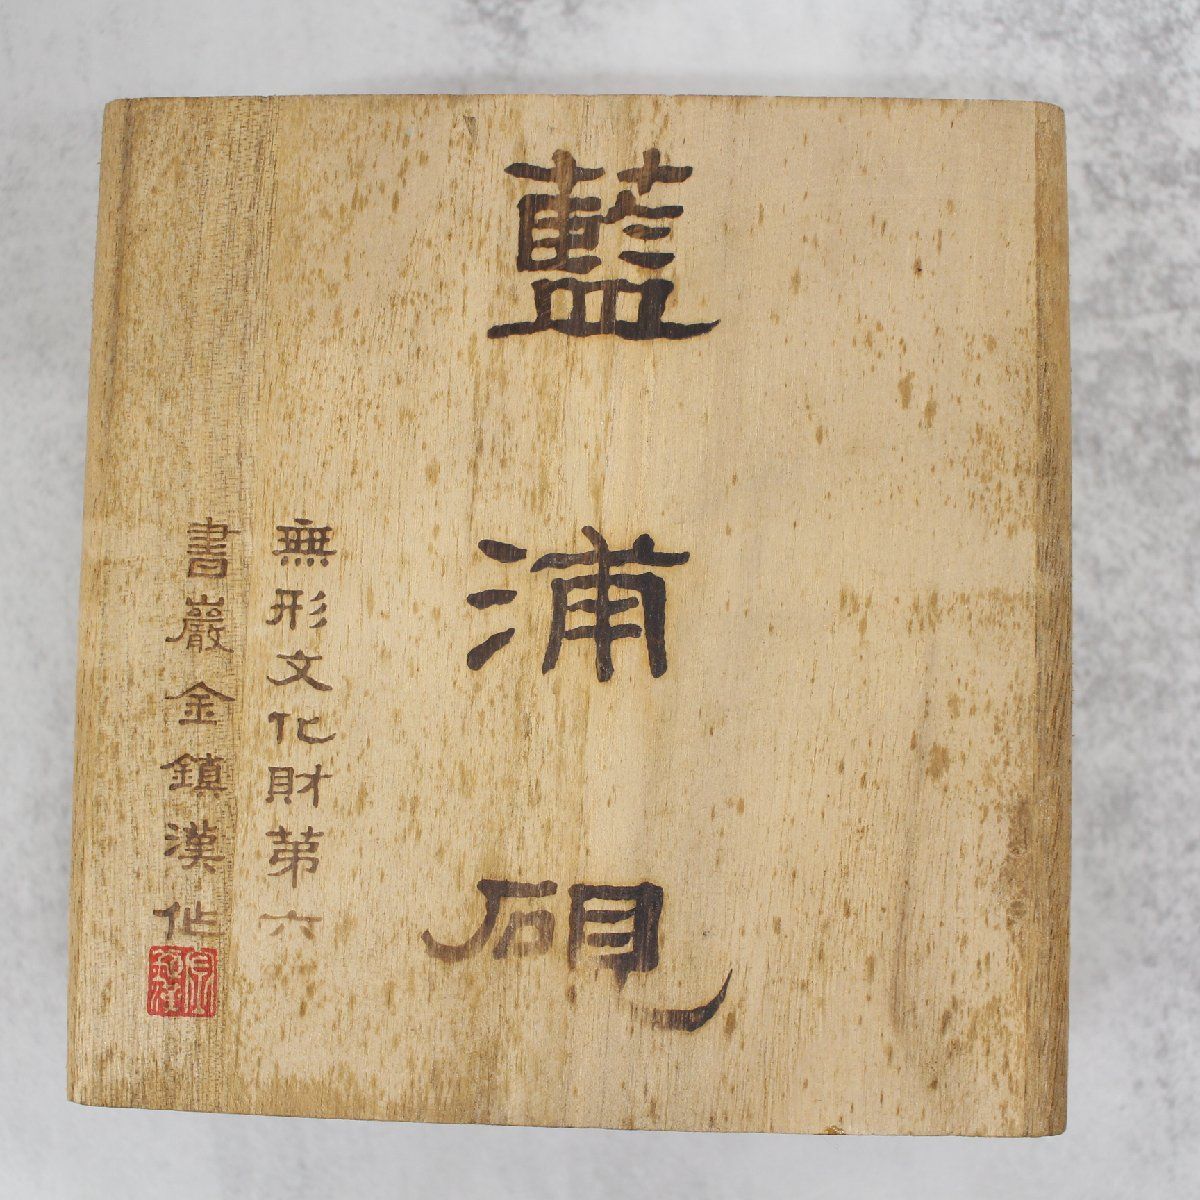 藍浦硯
無形文化財第六
書巖金鎮漢作